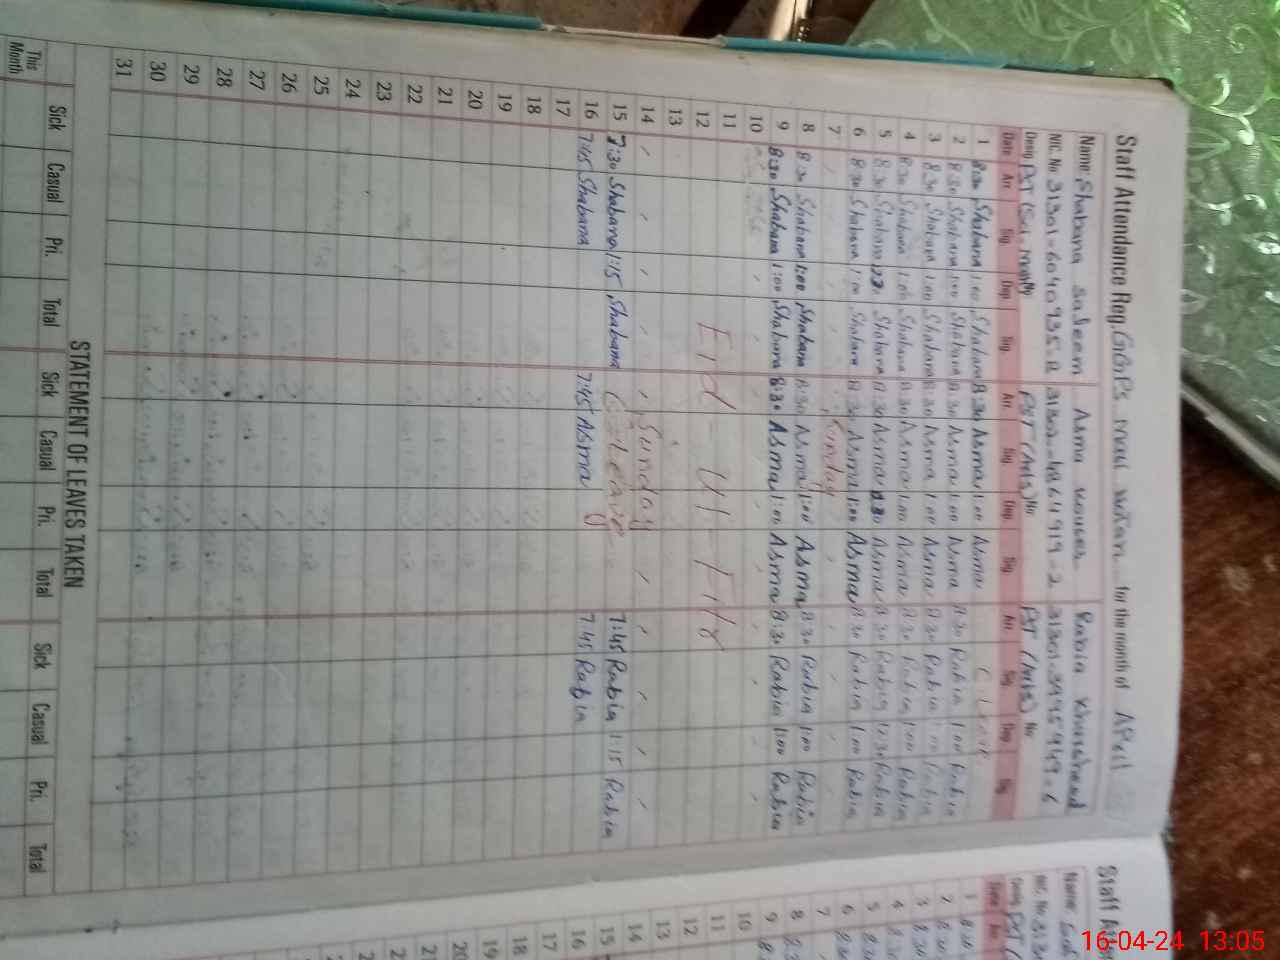 Staff Attendance Reg. for the month of April
Name: Shabana Saleem Asma Rabia Khurshead
NIC. No 31301-6040935-8
Desig PST PST (Arts) No PST (Arts) No
Date Arr. Sig. Dep. Sig. Arr. Sig. Dep. Sig. Arr. Sig. Dep. Sig.
1 8:30 Shabana 1:00 Shabana 8:30 Asma 1:00 Asma C. Leave
2 8:30 Shabana 1:00 Shabana 8:30 Asma 1:00 Asma 8:30 Rabia 1:00 Rabia
3 8:30 Shabana 1:00 Shabana 8:30 Asma 1:00 Asma 8:30 Rabia 1:00 Rabia
4 8:30 Shabana 1:00 Shabana 8:30 Asma 1:00 Asma 8:30 Rabia 1:00 Rabia
5 8:30 Shabana Shabana 8:30 Asma Asma 8:30 Rabia 12:30 Rabia
6 8:30 Shabana 1:00 Shabana 8:30 Asma 1:00 Asma 8:30 Rabia 1:00 Rabia
7 Sunday
8 8:30 Shabana 1:00 Shabana 8:30 Asma 1:00 Asma 8:30 Rabia 1:00 Rabia
9 8:30 Shabana 1:00 Shabana 8:30 Asma 1:00 Asma 8:30 Rabia 1:00 Rabia
10
11
12 Eid-Ul-Fitr
13
14 Sunday
15 7:30 Shabana 1:15 Shabana C. Leave 7:45 Rabia 1:15 Rabia
16 7:45 Shabana 7:45 Asma 7:45 Rabia
17
18
19
20
21
22
23
24
25
26
27
28
29
30
31
STATEMENT OF LEAVES TAKEN
Sick Casual Pri. Total Sick Casual Pri. Total Sick Casual Pri. Total
This Month
Staff
Name:
NIC. No
Desig
1
2
3
4
5
6
7
8
9
10
11
12
13
14
15
16
17
18
19
20
16-04-24 13:05